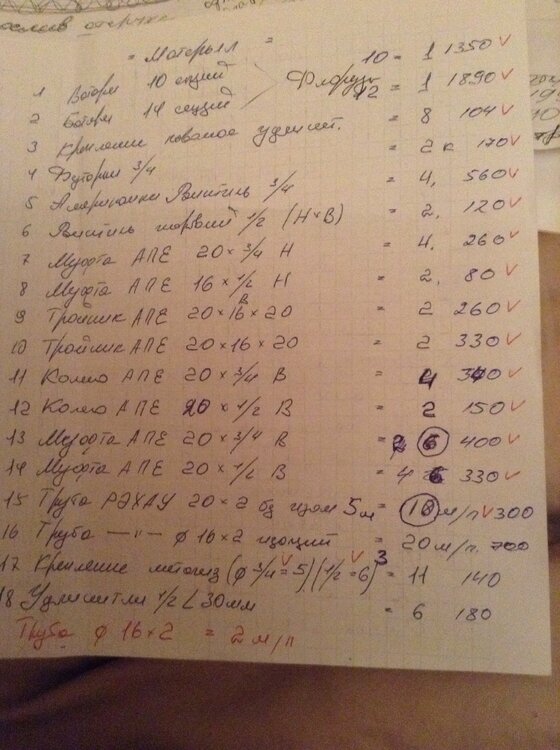 = Материал =
1 Батари 10 секций 10 = 1 1350 V
2 Батари 14 секций 12 = 1 1890 V
3 Крепление кованое удлинит. = 8 104 V
4 Футорки 3/4 = 2 к 170 V
5 Американки Вентиль 3/4 = 4. 560 V
6 Вентиль шаровый 1/2 (Н×В) = 2. 120 V
7 Муфта АПЕ 20 × 3/4 Н = 4. 260 V
8 Муфта АПЕ 16 × 1/2 Н = 2. 80 V
9 Тройник АПЕ 20 × 16 × 20 = 2 260 V
10 Тройник АПЕ 20 × 16 × 20 = 2 330 V
11 Колено АПЕ 20 × 3/4 В = 4 340 V
12 Колено АПЕ 20 × 1/2 В = 2 150 V
13 Муфта АПЕ 20 × 3/4 В = 2 6 400 V
14 Муфта АПЕ 20 × 1/2 В = 4 6 330 V
15 Труба РЭХАУ 20 × 2 5м = 18 м/п V 300
16 Труба —"— ф 16 × 2 = 20 м/п. 700
17 Крепление метогиз (ф 3/4 = 5) (1/2 = 6) 3 = 11 140
18 Удлинители 1/2 L 30мм = 6 180
Труба ф 16 × 2 = 2 м/п